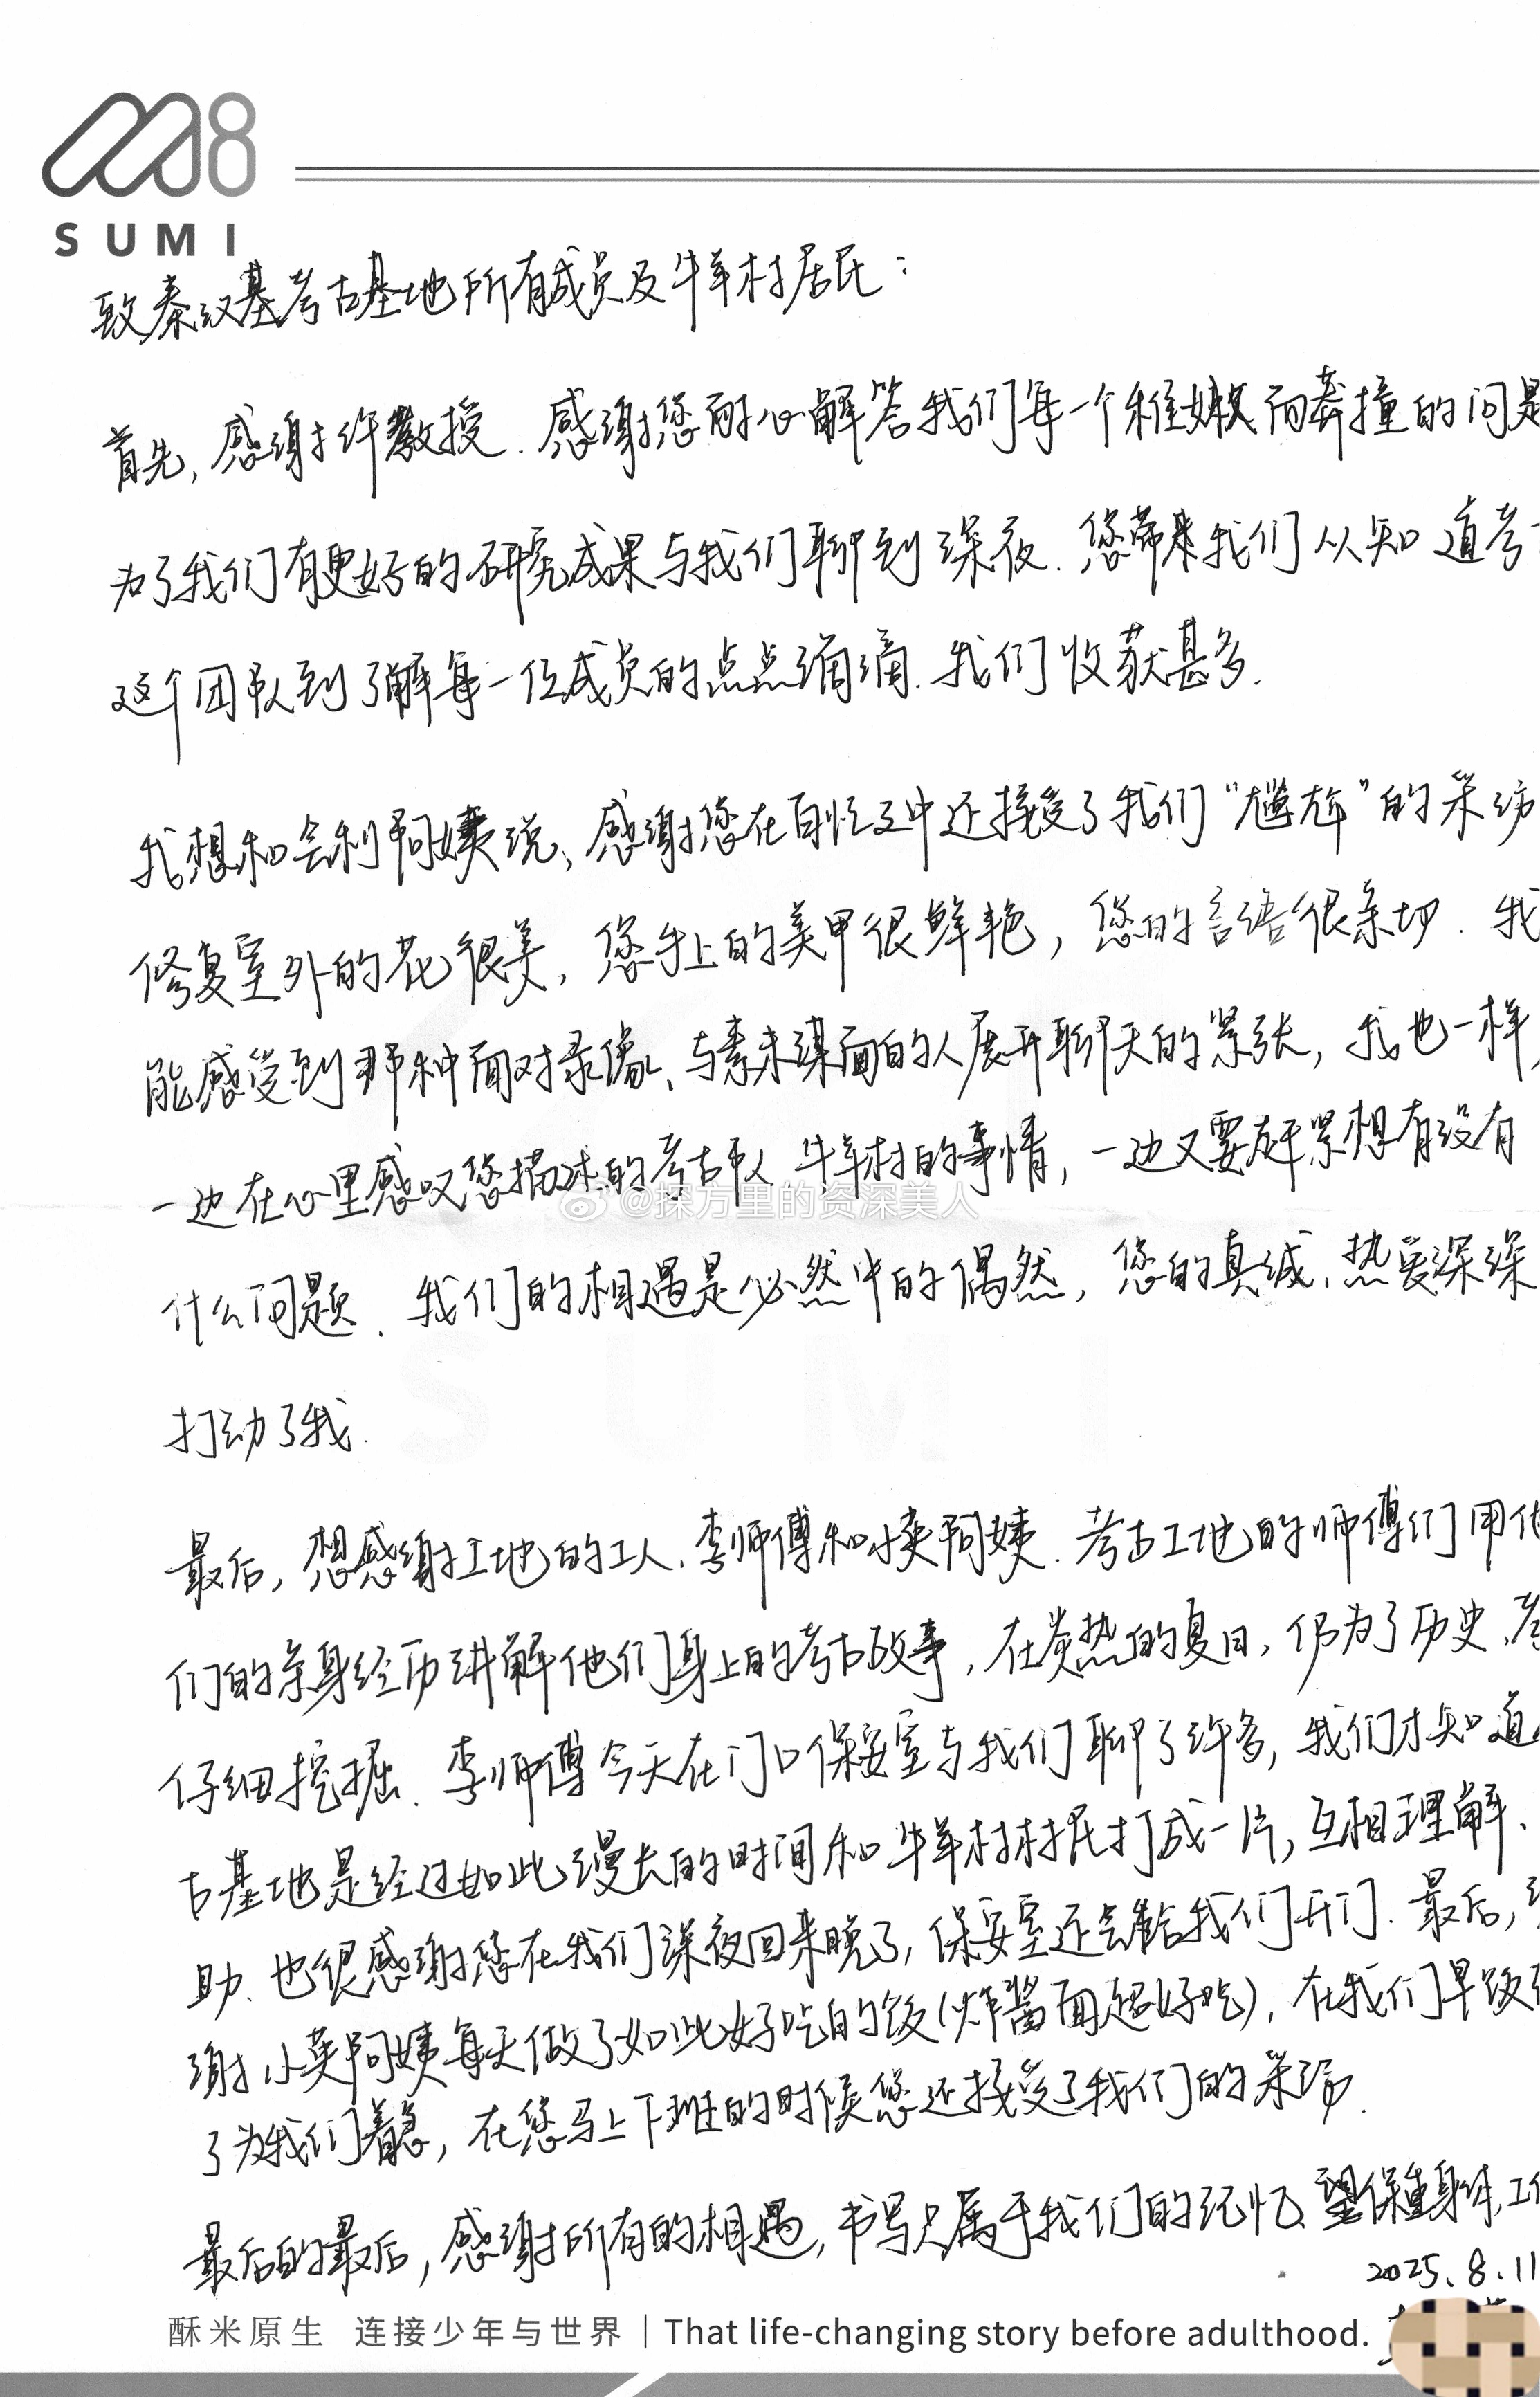 SUMI
致秦汉墓考古基地所有成员及牛羊村居民：
首先，感谢许教授.感谢您耐心解答我们每一个稚嫩而莽撞的问是
为了我们有更好的研究成果与我们聊到深夜.您带来我们从知道考
这个团队到了解每一位成员的点点滴滴.我们收获甚多.
我想和会利阿姨说，感谢您在百忙之中还接受了我们“尴尬”的采访
修复室外的花很美，您手上的美甲很鲜艳，您的言语很亲切.我
能感受到那种面对录像、与素未谋面的人展开聊天的紧张，我也一样，
一边在心里感叹您描述的考古队、牛羊村的事情，一边又要赶紧想有没有
什么问题.我们的相遇是必然中的偶然，您的真诚、热爱深深
打动了我.
最后，想感谢工地的工人、李师傅和小英阿姨.考古工地的师傅们用他
们的亲身经历讲解他们身上的考古故事，在炎热的夏日，仍为了历史、考
仔细挖掘.李师傅今天在门口保安室与我们聊了许多，我们才知道
古基地是经过如此漫长的时间和牛羊村村民打成一片，互相理解、
助、也很感谢您在我们深夜回来晚了，保安室还会给我们开门.最后，
谢小英阿姨每天做了如此好吃的饭(炸酱面超好吃)，在我们早饭
了为我们着急，在您马上下班的时候您还接受了我们的采访.
最后的最后，感谢所有的相遇，书写只属于我们的记忆、望保重身体，工作
2025.8.11
酥米原生 连接少年与世界｜That life-changing story before adulthood.
@探方里的资深美人
SUMI